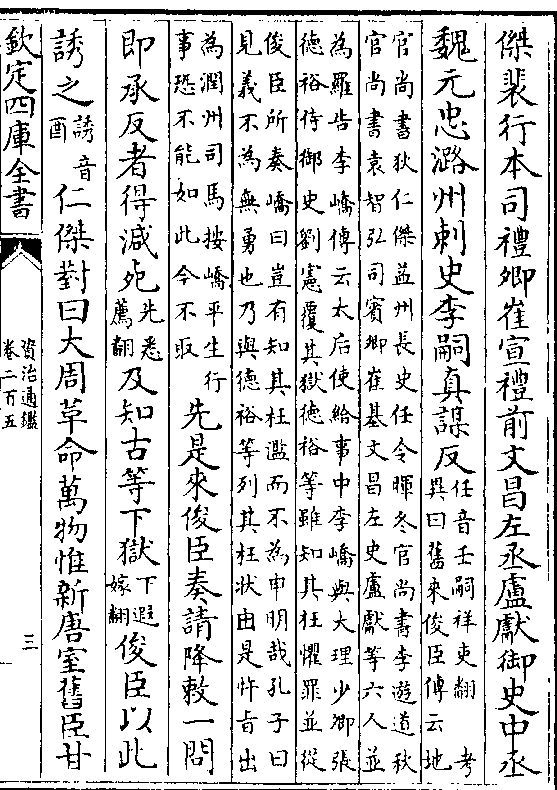 傑裴行本司禮卿崔宣禮前文昌左丞盧獻御史中丞
魏元忠潞州刺史李嗣真謀反任音壬嗣祥吏翻考
異曰舊來俊臣傳云地
官尚書狄仁傑益州長史任令暉冬官尚書李遊道秋
官尚書袁智弘司賓卿崔基文昌左史盧獻等六人並
為羅告李嶠傳云太后使給事中李嶠與大理少卿張
德裕侍御史劉憲覆其獄德裕等雖知其枉懼罪並從
俊臣所奏嶠曰豈有知其枉濫而不為申明哉孔子曰
見義不為無勇也乃與德裕等列其枉狀由是忤旨出
為潤州司馬按嶠平生行
事恐不能如此今不取
先是來俊臣奏請降敕一問
即承反者得減死先悉
薦翻
及知古等下獄下遐
嫁翻
俊臣以此
誘之誘音
酉
仁傑對曰大周革命萬物惟新唐室舊臣甘
欽定四庫全書
資治通鑑
卷二百五
三